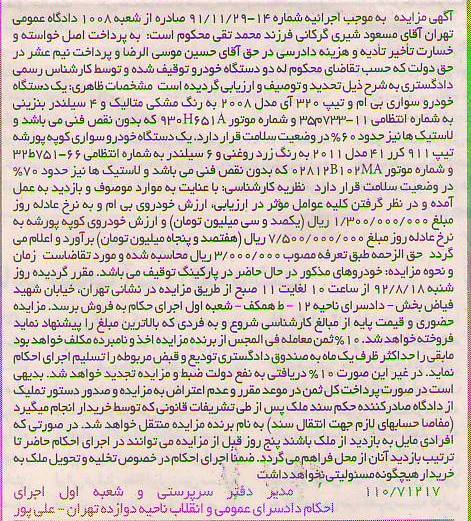 آگهی مزایده به موجب اجرائیه شماره ۱۴-۹۱/۱۱/۲۹ صادره از شعبه ۱۰۰۸ دادگاه عمومی
تهران آقای مسعود شیری گرکانی فرزند محمد تقی محکوم است: به پرداخت اصل خواسته و
خسارت تأخیر تأدیه و هزینه دادرسی در حق آقای حسین موسی الرضا و پرداخت نیم عشر در
حق دولت که حسب تقاضای محکوم له دو دستگاه خودرو توقیف شده و توسط کارشناس رسمی
دادگستری به شرح ذیل تحدید و توصیف و ارزیابی گردیده است مشخصات ظاهری: یک دستگاه
خودرو سواری بی ام و تیپ ۳۲۰ آی مدل ۲۰۰۸ به رنگ مشکی متالیک و ۴ سیلندر بنزینی
به شماره انتظامی ۱۱-۷۳۳م۳۵ و شماره موتور ۹۳۰H۶۵۱A که بدون نقص فنی می باشد و
لاستیک ها نیز حدود ۶۰% در وضعیت سلامت قرار دارد. یک دستگاه خودرو سواری کوپه پورشه
تیپ ۹۱۱ کررا ۴ مدل ۲۰۱۱ به رنگ زرد روغنی و ۶ سیلندر به شماره انتظامی ۶۶-۷۵۱ب۳۲
و شماره موتور ۰۲۸۱۲B۱۰۲MA که بدون نقص فنی می باشد و لاستیک ها نیز حدود ۷۰%
در وضعیت سلامت قرار دارد نظریه کارشناسی: با عنایت به موارد موصوف و بازدید به عمل
آمده و در نظر گرفتن کلیه عوامل مؤثر در ارزیابی، ارزش خودروی بی ام و به نرخ عادله روز
مبلغ ۱/۳۰۰/۰۰۰/۰۰۰ ریال (یکصد و سی میلیون تومان) و ارزش خودروی کوپه پورشه به
نرخ عادله روز مبلغ ۷/۵۰۰/۰۰۰/۰۰۰ ریال (هفتصد و پنجاه میلیون تومان) برآورد و اعلام می
گردد حق الزحمه طبق تعرفه مصوب ۳/۰۰۰/۰۰۰ ریال محاسبه شده و مورد تقاضاست زمان
و نحوه مزایده: خودروهای مذکور در حال حاضر در پارکینگ توقیف می باشد. مقرر گردیده روز
شنبه ۹۲/۸/۱۸ از ساعت ۱۰ لغایت ۱۱ صبح از طریق مزایده در نشانی تهران، خیابان شهید
فیاض بخش - دادسرای ناحیه ۱۲ - ط همکف - شعبه اول اجرای احکام به فروش برسد. مزایده
حضوری و قیمت پایه از مبالغ کارشناسی شروع و به فردی که بالاترین مبلغ را پیشنهاد نماید
فروخته خواهد شد. ۱۰% ثمن معامله فی المجلس از برنده مزایده اخذ و نامبرده مکلف خواهد بود
مابقی را حداکثر ظرف یک ماه به صندوق دادگستری تودیع و قبض مربوطه را تسلیم اجرای احکام
نماید. در غیر این صورت ۱۰% دریافتی به نفع دولت ضبط و مزایده تجدید خواهد شد. بدیهی
است در صورت پرداخت کل ثمن در موعد مقرر و عدم اعتراض به مزایده و صدور دستور تملیک
از دادگاه صادرکننده حکم سند ملک پس از طی تشریفات قانونی که توسط خریدار انجام میگیرد
(مفاصا حسابهای لازم جهت انتقال سند) به نام برنده مزایده منتقل خواهد شد. در صورتی که
افرادی مایل به بازدید از ملک باشند پنج روز قبل از مزایده می توانند در اجرای احکام حاضر تا
ترتیب بازدید آنان از محل فراهم می گردد. ضمناً اجرای احکام در خصوص تخلیه و تحویل ملک به
خریدار هیچگونه مسئولیتی نخواهد داشت
۱۱۰/۷۱۲۱۷ مدیر دفتر سرپرستی و شعبه اول اجرای
احکام دادسرای عمومی و انقلاب ناحیه دوازده تهران - علی پور